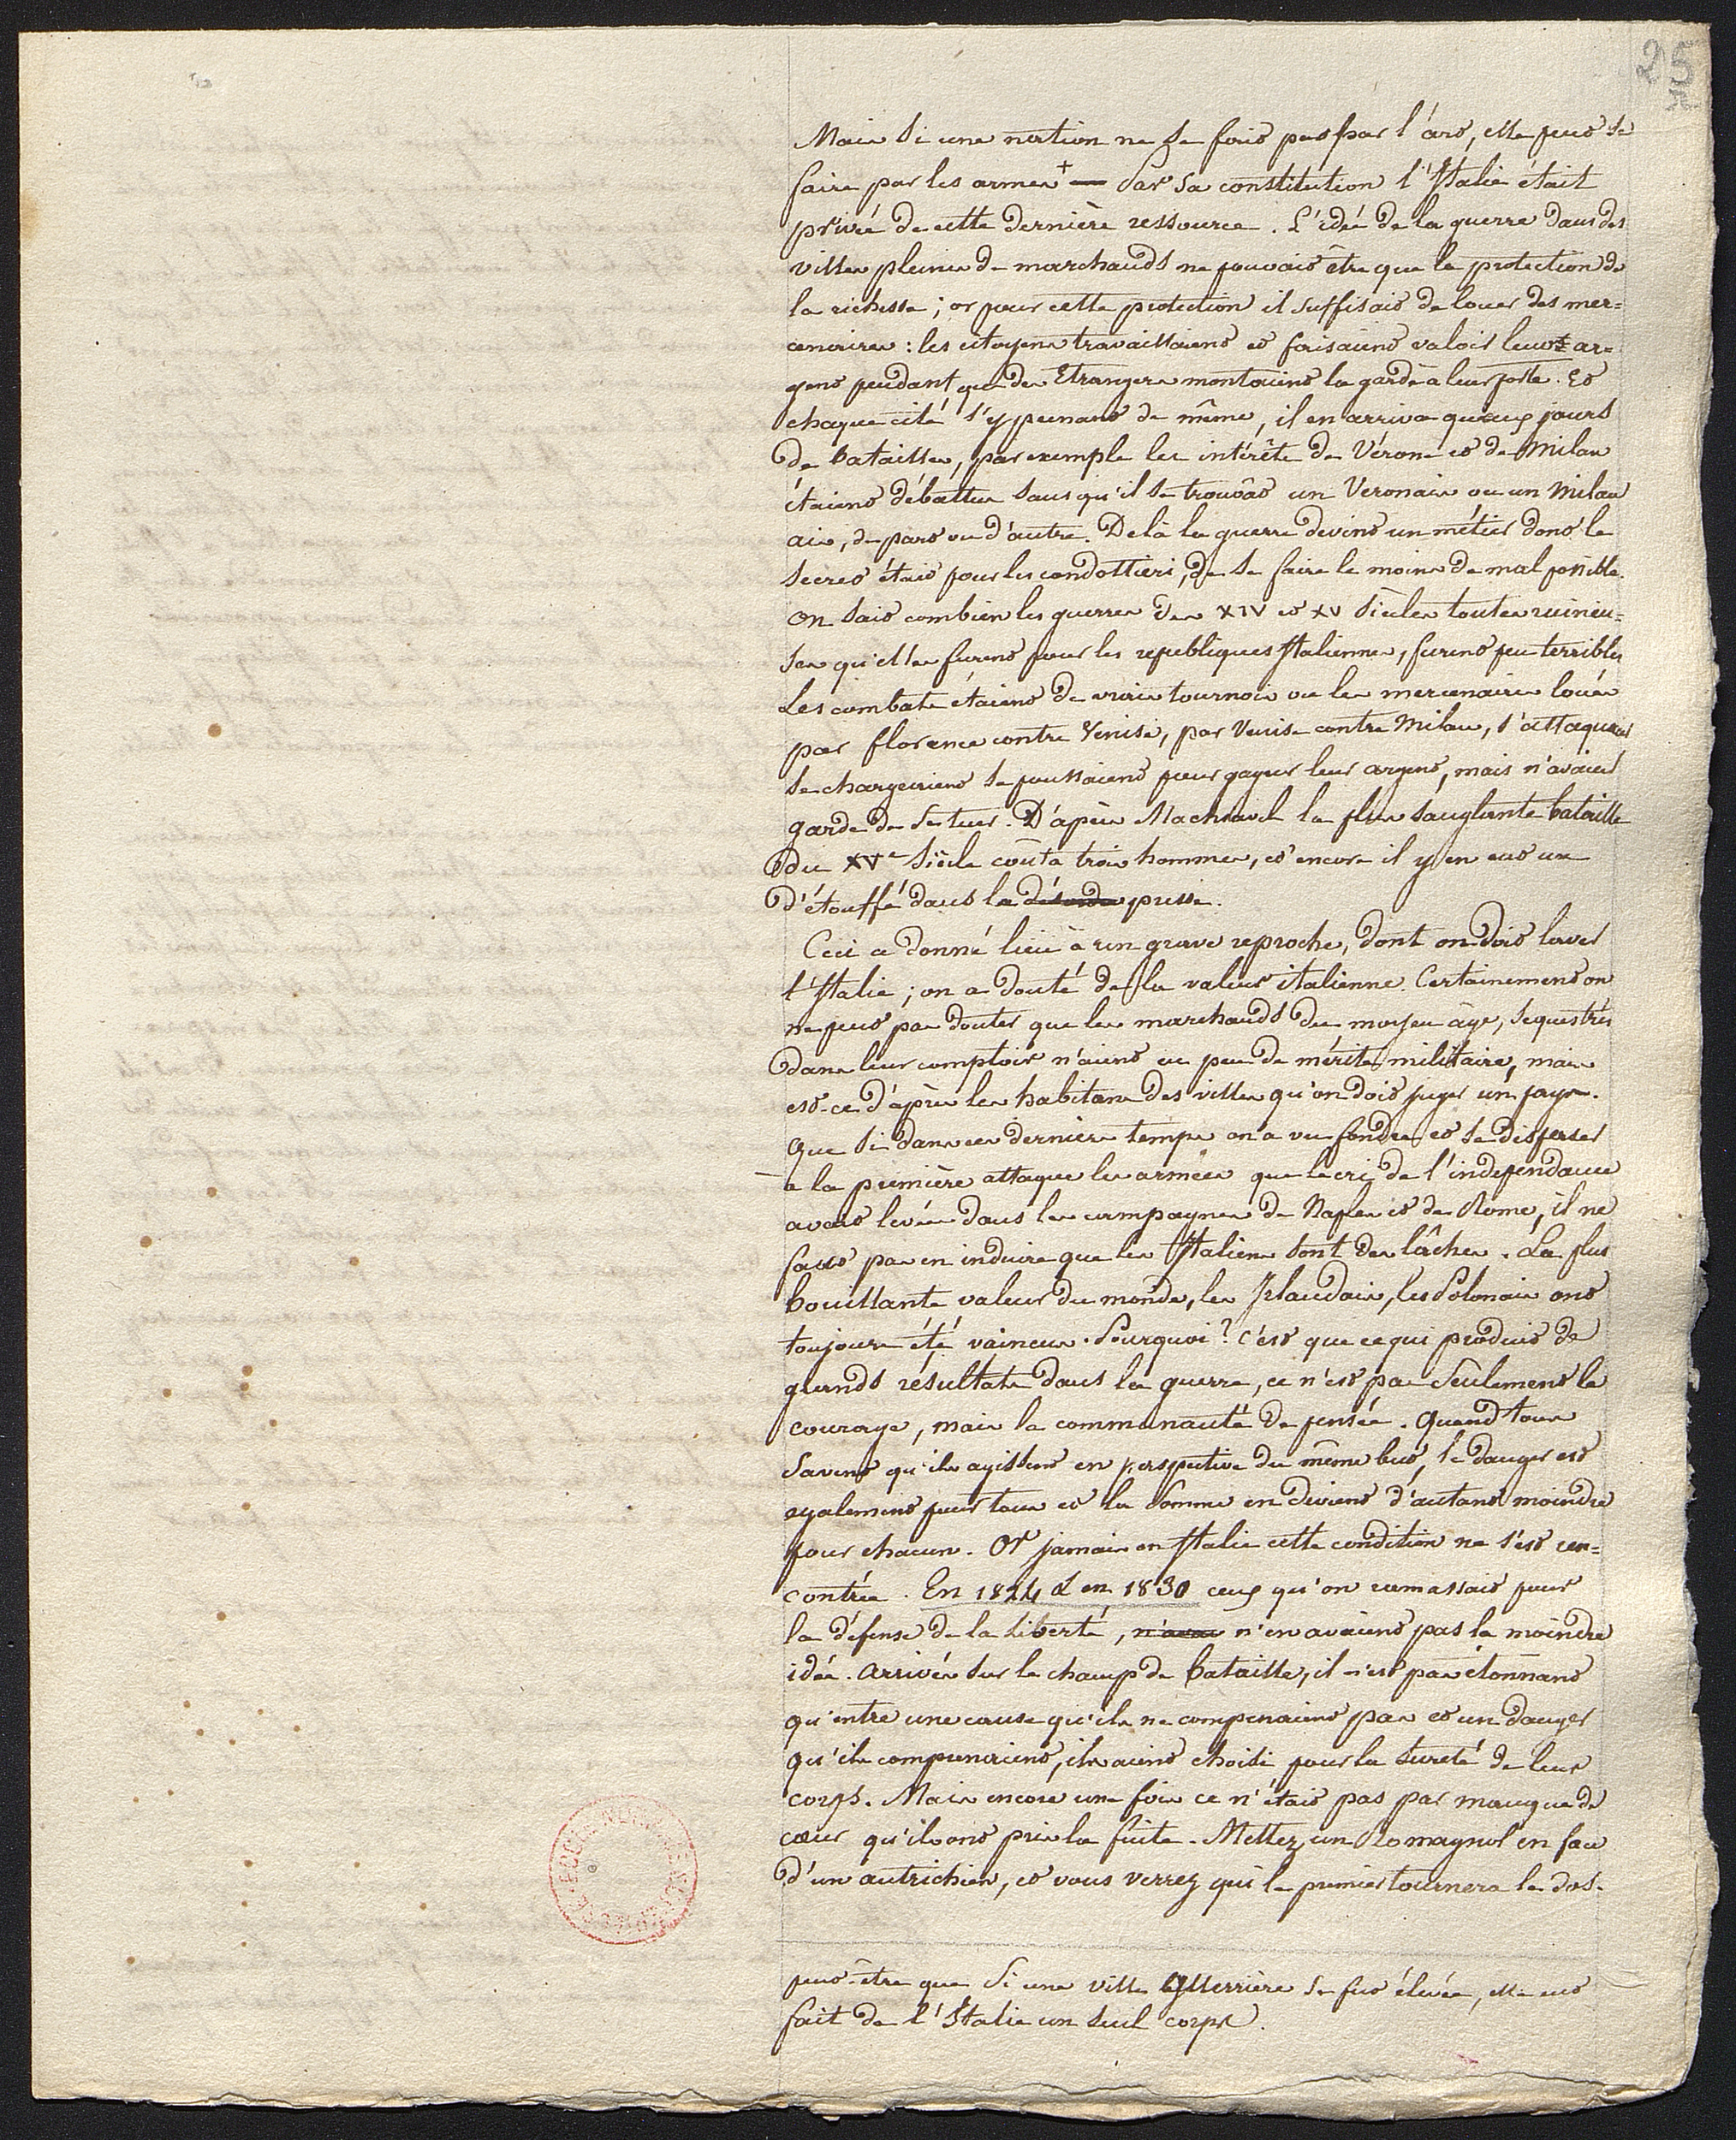 25
Mais si une nation ne se fait pas par l'art, elle peut se
faire par les armes + Par sa constitution l'Italie était
privée de cette dernière ressource. L'idée de la guerre dans des
villes pleines de marchands ne pouvait être que la protection de
la richesse ; or pour cette protection il suffisait de louer des mer=
cenaires : les citoyens travaillaient et faisaient valoir leur ar=
gent pendant que des Etrangers montaient la garde à leur porte. Et
chaque cité s'y prenant de même, il en arriva qu'aux jours
de bataille, par exemple les intérêts de Vérone et de Milan
étaient débattus sans qu'il se trouvât un Veronais ou un Milan
ais, de part ou d'autre. De là la guerre devint un métier dont le
secret était pour les condottieri, de se faire le moins de mal possible.
On sait combien les guerres des XIV et XV siècles toutes ruineu=
ses qu'elles furent pour les republiques Italiennes, furent peu terribles
Les combats étaient de vrais tournois ou les mercenaires loués
par florence contre Venise, par Venise contre Milan, s'attaquaient
se chargeaient se poussaient pour gagner leur argent, mais n'avaient
garde de se tuer. D'après Machiavel la plus sanglante bataille
du XVe siècle coûta trois hommes, et encore il y en eut un
d'étouffé dans la désordre presse.
Ceci a donné lieu à un grave reproche, dont on doit laver
l'Italie ; on a douté de la valeur italienne. Certainement on
ne peut pas douter que les marchands du moyen âge, sequestrés
dans leur comptoir n'aient eu peu de mérite militaire, mais
est-ce d'après les habitans des villes qu'on doit juger un pays.
Que si dans ces derniers temps on a vu fondre et se disperser
a la première attaque les armées que le cri de l'independance
avait levées dans les campagnes de Naples et de Rome, il ne
faut pas en induire que les Italiens sont des lâches. La plus
bouillante valeur du monde, les Irlandais, les Polonais ont
toujours été vaincus. Pourquoi ? C'est que ce qui produit de
grands résultats dans la guerre, ce n'est pas seulement le
courage, mais la communauté de pensée. Quand tous
savent qu'ils agissent en perspective du même but, le danger est
egalement pour tous et la somme en devient d'autant moindre
pour chacun. Or jamais en Italie cette condition ne s'est ren=
contrée. En 1824 & en 1830 ceux qu'on ramassait pour
la défense de la Liberté, n'avai n'en avaient pas la moindre
idée. Arrivés sur le champ de bataille, il n'est pas étonnant
qu'entre une cause qu'ils ne comprenaient pas et un danger
qu'ils comprenaient, ils aient choisi pour la sureté de leur
corps. Mais encore une fois ce n'était pas par manque de
cœur qu'ils ont pris la fuite. Mettez un Romagnol en face
d'un autrichien, et vous verrez qui le premier tournera le dos.
peut-être que si une ville guerrière se fut élevée, elle eut
fait de l'Italie un seul corps.